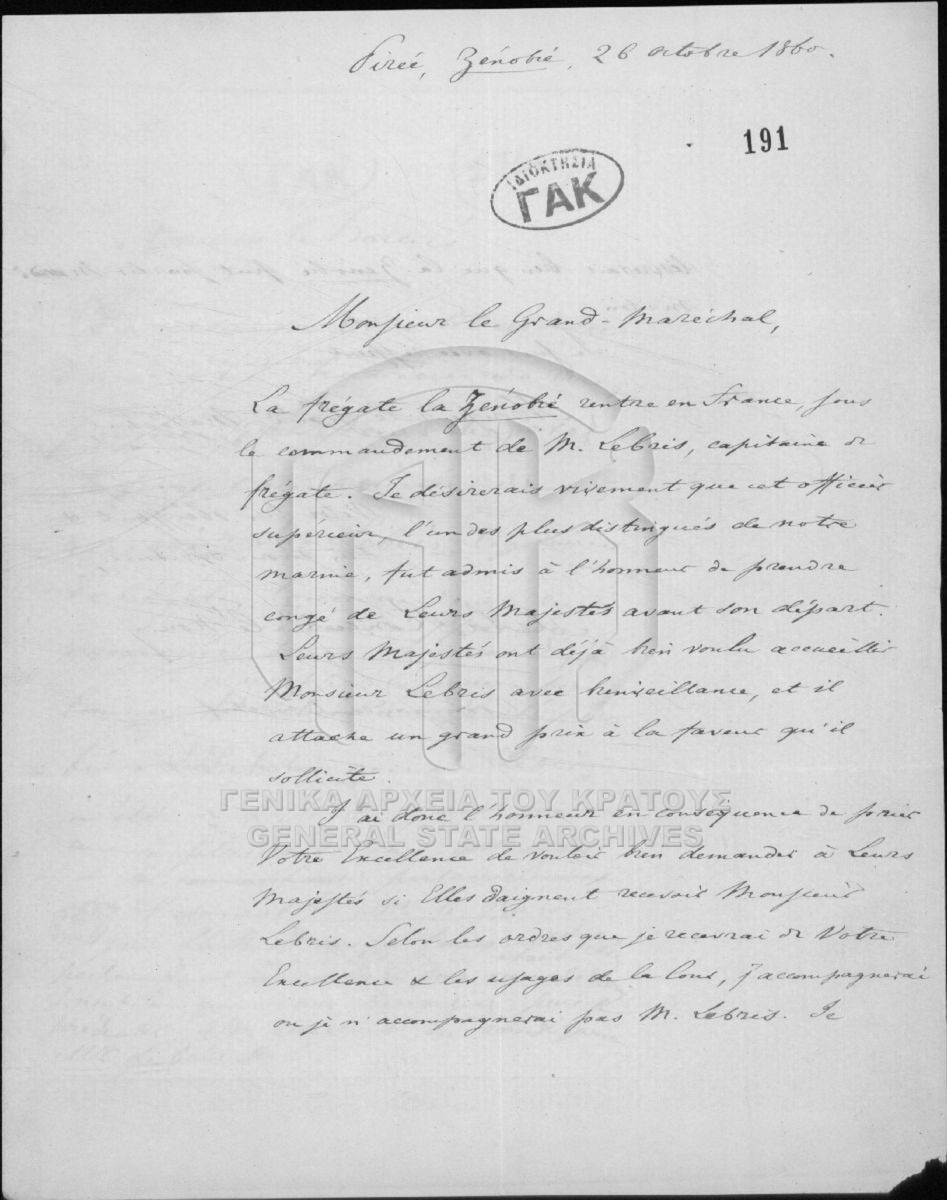 Pirée, Zénobie, 26 octobre 1860.
191
ΙΔΙΟΚΤΗΣΙΑ
ΓΑΚ
Monsieur le Grand-Maréchal,
La frégate la Zénobie rentre en France, sous
le commandement de M. Lebris, capitaine de
frégate. Je désirerais vivement que cet officier
supérieur, l'un des plus distingués de notre
marine, fut admis à l'honneur de prendre
congé de Leurs Majestés avant son départ.
Leurs Majestés ont déjà bien voulu accueillir
Monsieur Lebris avec bienveillance, et il
attache un grand prix à la faveur qu'il
sollicite.
ΓΕΝΙΚΑ ΑΡΧΕΙΑ ΤΟΥ ΚΡΑΤΟΥΣ
GENERAL STATE ARCHIVES
J'ai donc l'honneur en conséquence de prier
Votre Excellence de vouloir bien demander à Leurs
Majestés si Elles daignent recevoir Monsieur
Lebris. Selon les ordres que je recevrai de Votre
Excellence & les usages de la Cour, j'accompagnerai
ou je n'accompagnerai pas M. Lebris. Je